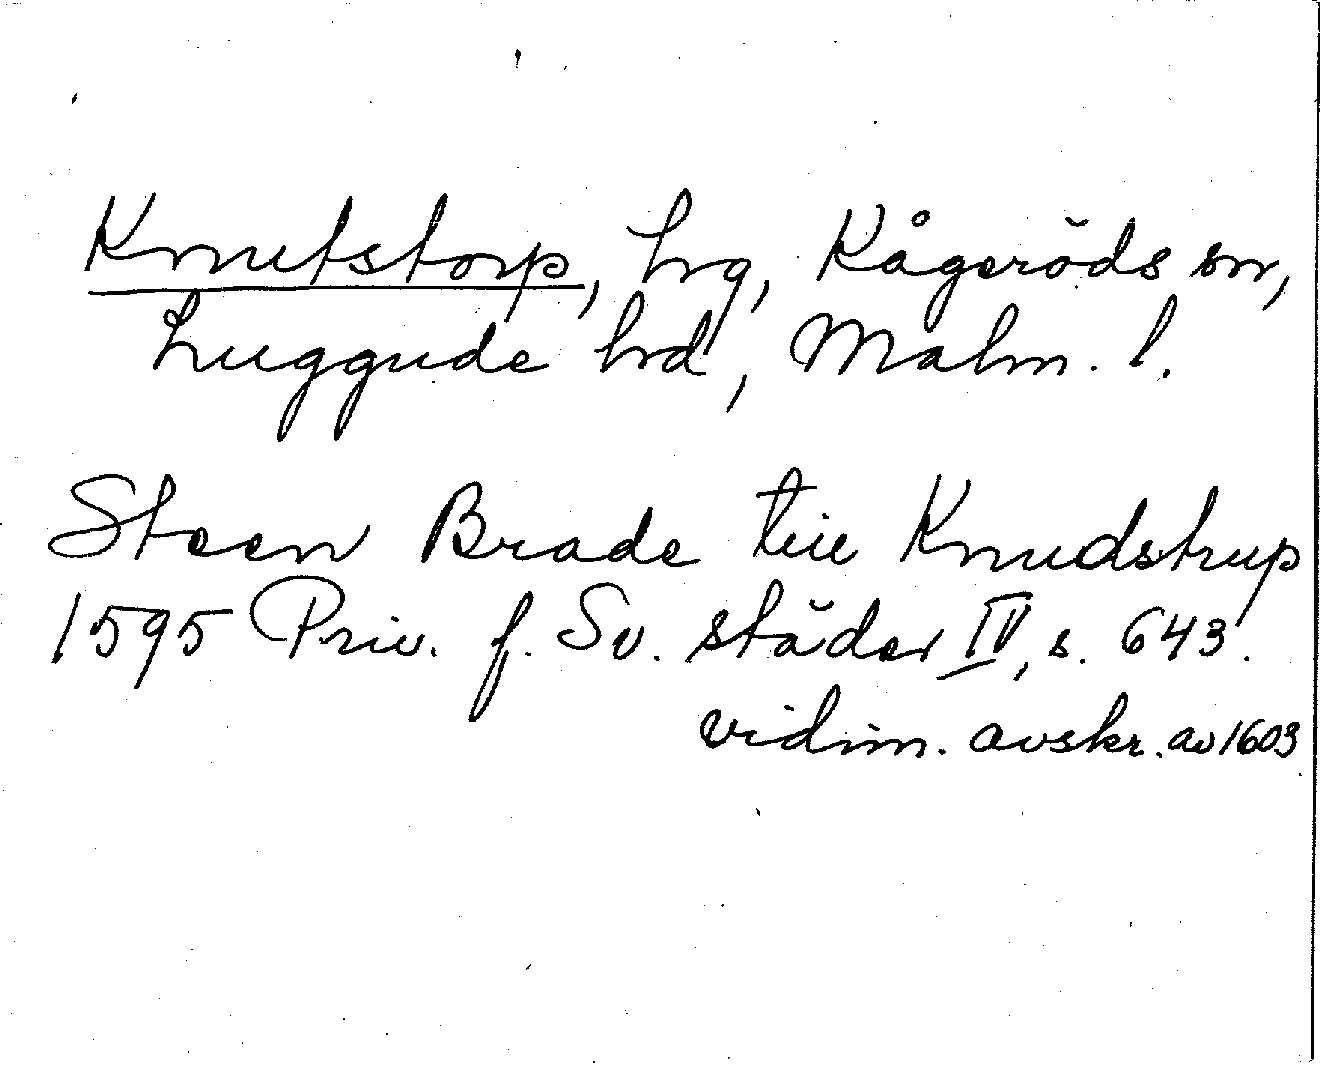 Knutstorp, hrg, Kågeröds sn,
Luggude hrd, Malm. l.
Steen Brade tiil Knudstrup
1595 Priv. f. Sv. städer IV, s. 643.
vidim. avskr. av 1603